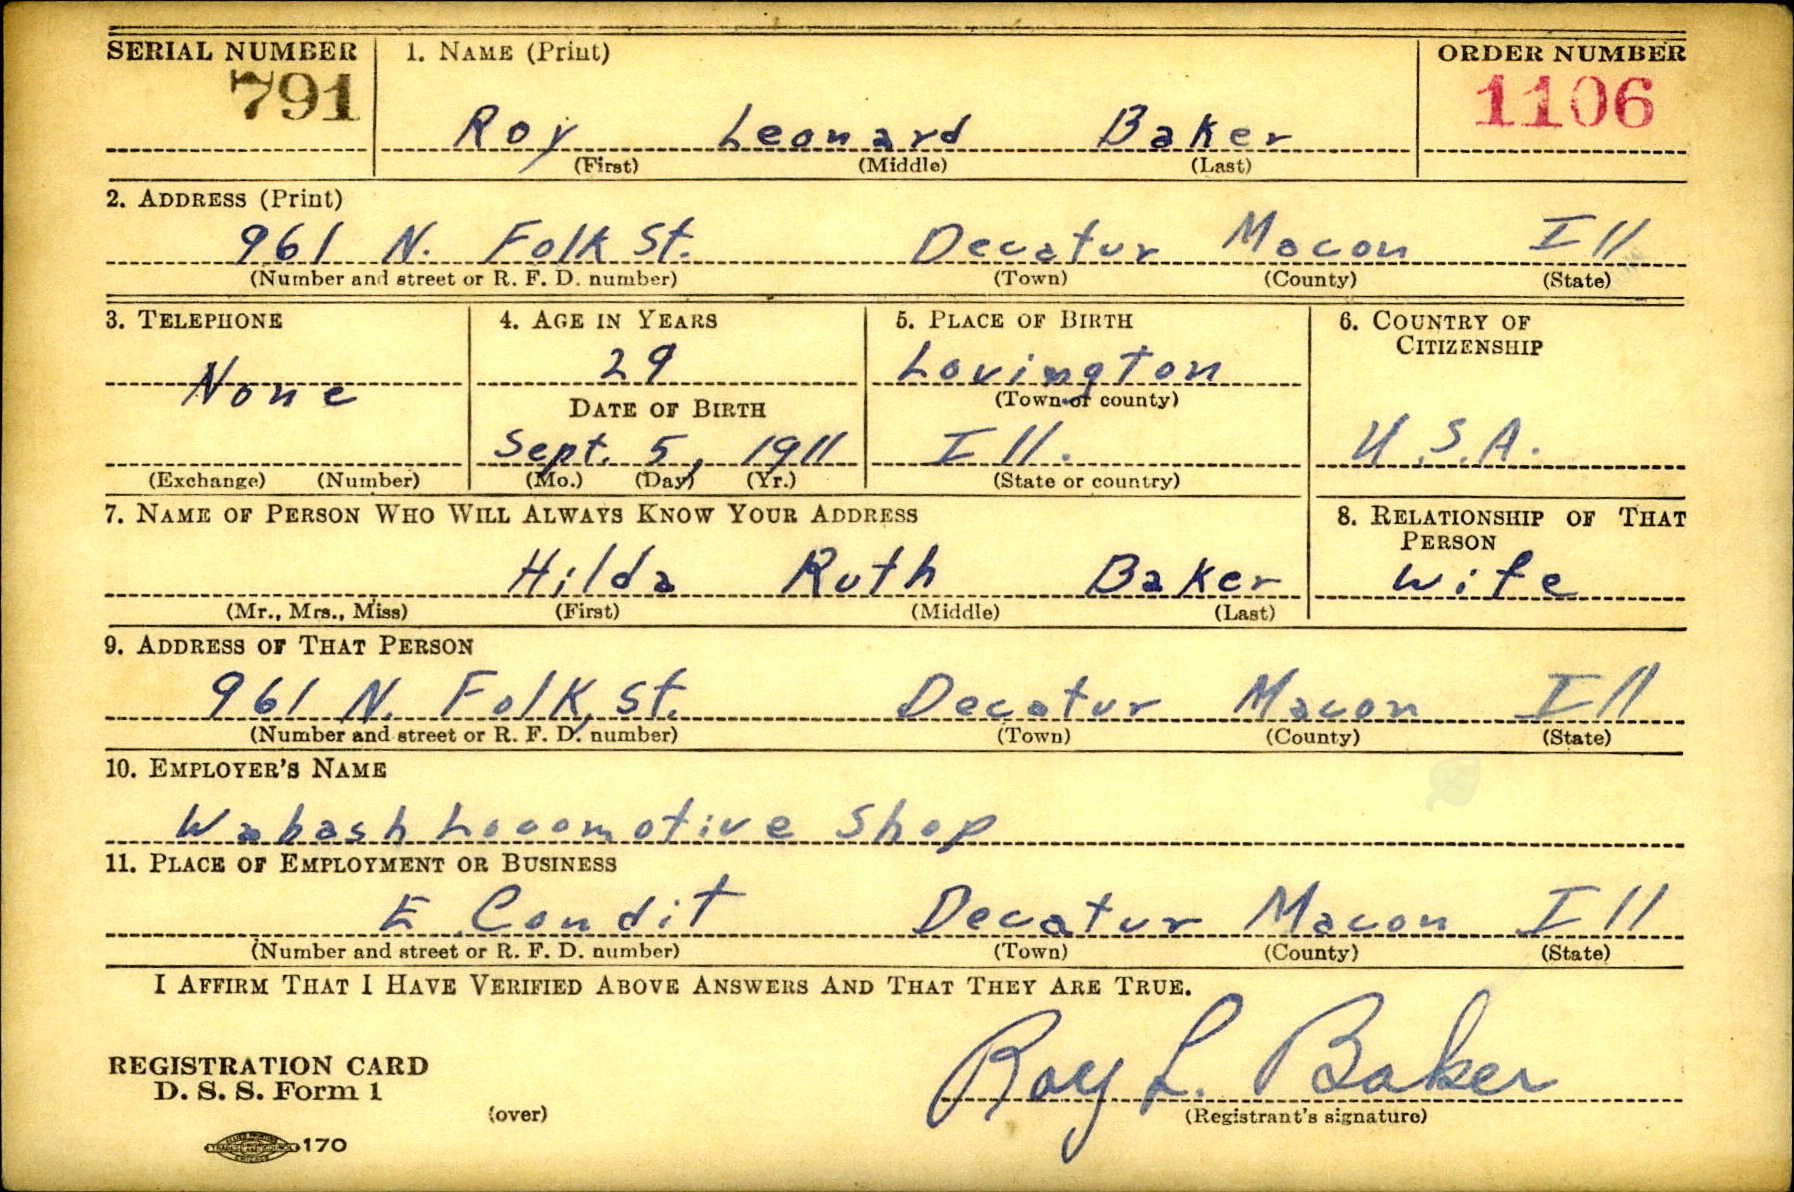 SERIAL NUMBER 1. NAME (Print) ORDER NUMBER
791 1106
Roy Leonard Baker
(First) (Middle) (Last)
2. ADDRESS (Print)
961 N. Folk St. Decatur Macon Ill
(Number and street or R. F. D. number) (Town) (County) (State)
3. TELEPHONE 4. AGE IN YEARS 5. PLACE OF BIRTH 6. COUNTRY OF
CITIZENSHIP
29 Lovington
None (Town or county)
DATE OF BIRTH
Sept. 5, 1911 Ill. U.S.A.
(Exchange) (Number) (Mo.) (Day) (Yr.) (State or country)
7. NAME OF PERSON WHO WILL ALWAYS KNOW YOUR ADDRESS 8. RELATIONSHIP OF THAT
PERSON
Hilda Ruth Baker Wife
(Mr., Mrs., Miss) (First) (Middle) (Last)
9. ADDRESS OF THAT PERSON
961 N. Folk, St. Decatur Macon Ill
(Number and street or R. F. D. number) (Town) (County) (State)
10. EMPLOYER'S NAME
Wabash Locomotive Shop
11. PLACE OF EMPLOYMENT OR BUSINESS
E. Condit Decatur Macon Ill
(Number and street or R. F. D. number) (Town) (County) (State)
I AFFIRM THAT I HAVE VERIFIED ABOVE ANSWERS AND THAT THEY ARE TRUE.
Roy L. Baker
REGISTRATION CARD
D. S. S. Form 1
(over) (Registrant's signature)
170